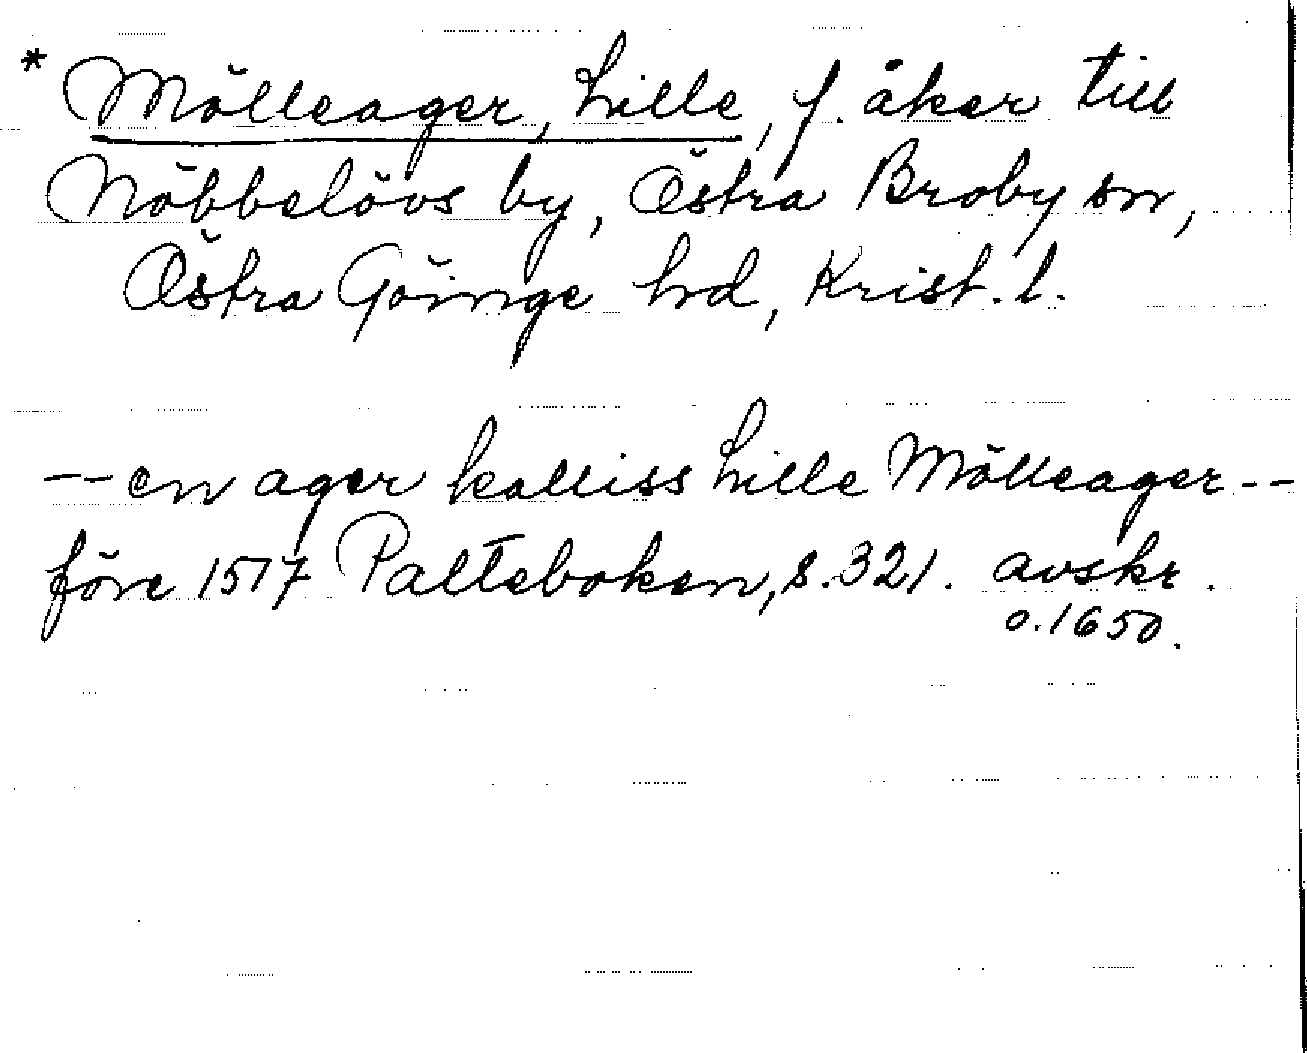 * Mölleager, Lille, f. åker till
Nöbbelövs by, Östra Broby sn,
Östra Göinge hd, Krist. l.
-- en ager kalliss Lille Mölleager --
före 1517 Palteboken, s. 321. avskr.
o. 1650.